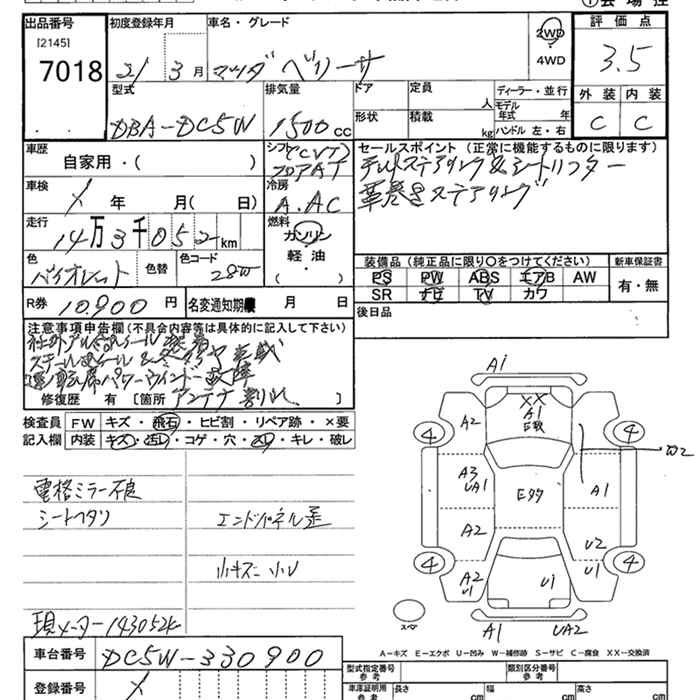 ①会場控
出品番号 初度登録年月 車名・グレード 2WD 評価点
[2145] 4WD
7018 21 3月 マツダ ベリーサ 3.5
型式 排気量 ドア 定員 人 ディーラー・並行 外装 内装
DBA-DC5W 1500cc 形状 積載 kg モデル年式 年 C C
ハンドル 左・右
車歴 シフト セールスポイント (正常に機能するものに限ります)
自家用・( ) (CVT) チルトステアリング&シートリフター
フロアAT 革巻きステアリング
車検 冷房
年 月( 日) A.AC
走行 燃料
14万3千052km ガソリン
色 色替 色コード 軽油 装備品 (純正品に限り○をつけてください) 新車保証書
バイオレット 28W ( ) PS PW ABS エアB AW 有・無
SR ナビ TV カワ
R券 10,900円 名変通知期限 月 日 後日品
注意事項申告欄(不具合内容等は具体的に記入して下さい)
社外アルミホイール装着
スチールホイール&冬タイヤ車載
運転席パワーウインドー故障
修復歴 有 [箇所 アンテナ割れ ]
検査員 FW キズ・飛石・ヒビ割・リペア跡・×要
記入欄 内装 キズ・汚れ・コゲ・穴・スレ・キレ・破レ
電格ミラー不良
シートヘタリ エンドパネル歪
小キズ 小U
現メーター143052K
A1
A2 XX A1 4 4
A3 UA1 A1
A2 U2
A2 U1 U1 U1
4 4
スペ A1 UA2
A-キズ E-エクボ U-凹み W-補修跡 S-サビ C-腐食 XX-交換済
車台番号 DC5W-330900
登録番号
型式指定番号 参考 類別区分番号 参考
車庫証明用 参考 長さ cm 幅 cm 高さ cm